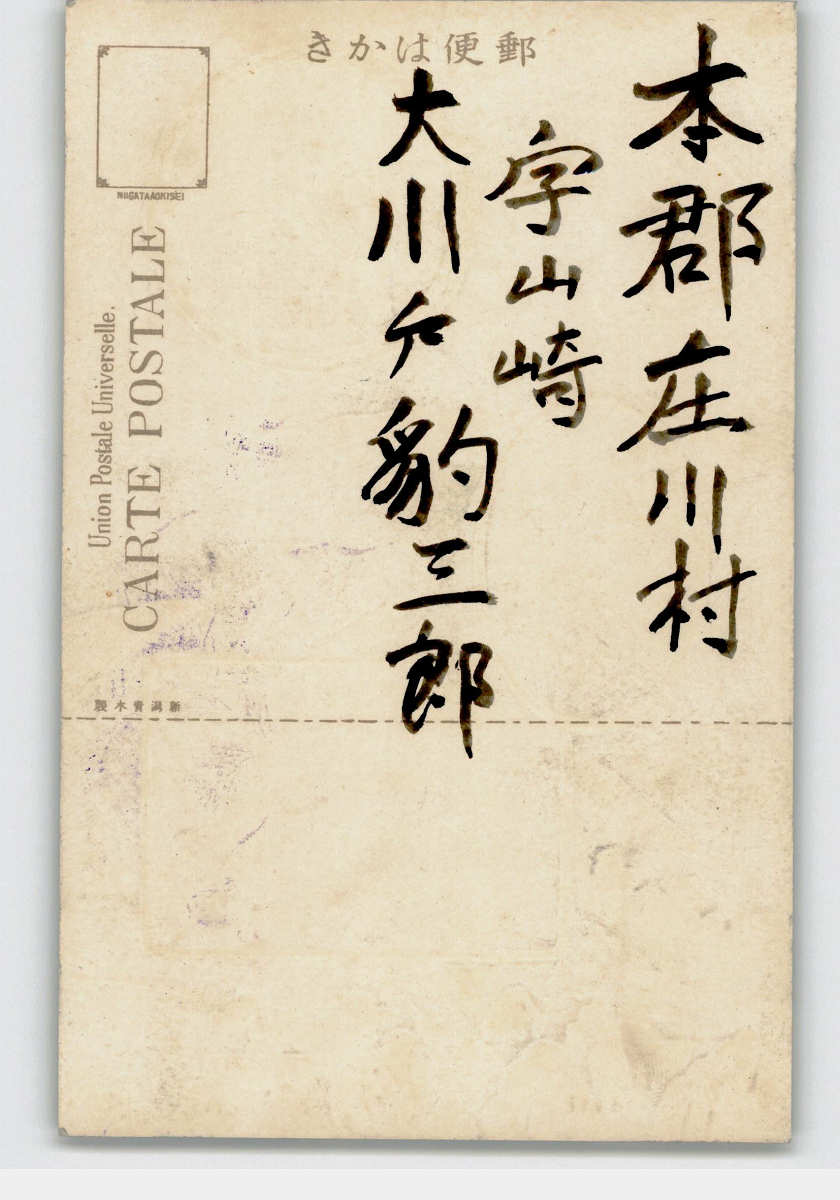 郵便はかき
本郡庄川村
字山崎
大川戸豹三郎
NIIGATAAOKISEI
Union Postale Universelle.
CARTE POSTALE
新潟青木製